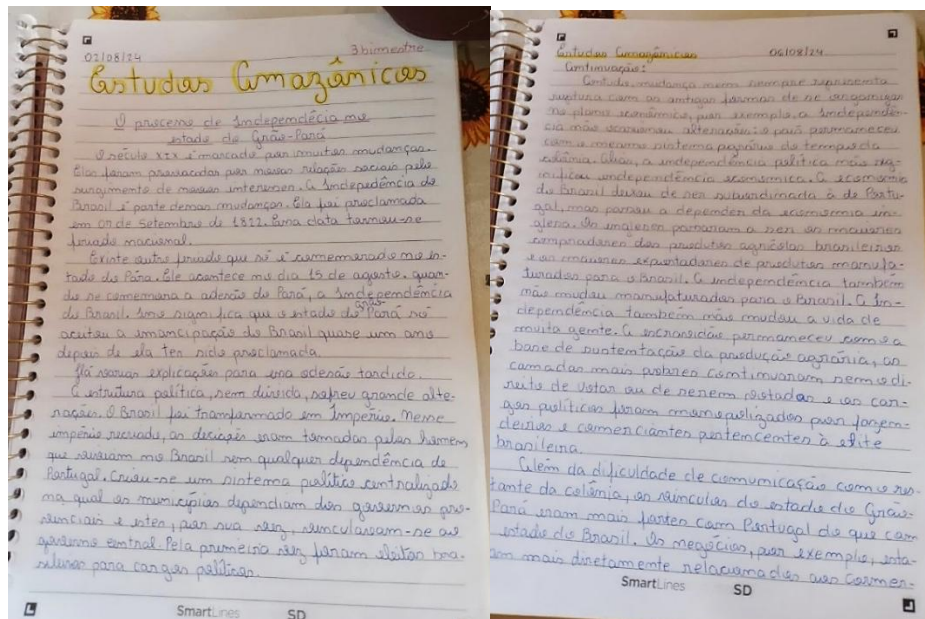 02/08/24
3 bimestre
Estudos Amazônicos
O processo de Independécia no
estado do Grão-Pará
O século XIX é marcado por muitas mudanças.
Elas foram provocadas por novas relações sociais pelo
surgimento de novos interesses. A Independência do
Brasil é parte dessas mudanças. Ela foi proclamada
em 07 de Setembro de 1822. Essa data tornou-se
feriado nacional.
Existe outro feriado que só é comemorado no es-
tado do Pára. Ele acontece no dia 15 de agosto, quan-
do se comemora a adesão do Pará, a Independência
do Brasil. Isso significa que o estado do Grão Pará só
aceitou a emancipação do Brasil quase um ano
depois de ela ter sido proclamada.
Há varias explicações para essa adesão tardida.
A estrutura política, sem dúvida, sofreu grande alte-
rações. O Brasil foi transformado em Império. Nesse
império recriado, as decições eram tomadas pelos homens
que viviam no Brasil sem qualquer dependência de
Portugal. Criou-se um sistema político centralizado
na qual os municípios dependiam dos governos pro-
vinciais e estes, por sua vez, vinculavam-se ao
governo central. Pela primeira vez foram eleitos bra-
sileiros para cargos políticos.
SmartLines SD
Estudos Amazônicos 06/08/24
Continuação:
Contudo, mudança nem sempre representa
ruptura com as antigas formas de se organizar
no plano econômico, por exemplo, a independên-
cia não ocasionou alterações: o país permaneceu
com o mesmo sistema agrário do tempo da
colônia. Aliás, a independência política não sig-
nificou independência econômica. A economia
do Brasil deixou de ser subordinada à de Portu-
gal, mas passou a depender da economia in-
glesa. Os ingleses passaram a ser os maiores
compradores dos produtos agrícolas brasileiros
e os maiores exportadores de produtos manufa-
turados para o Brasil. A independência também
não mudou manufaturados para o Brasil. A In-
dependência também não mudou a vida de
muita gente. A escravidão permaneceu como a
base de sustentação da produção agrária, as
camadas mais pobres continuaram sem o di-
reito de votar ou de serem votados e os car-
gos políticos foram monopolizados por fazen-
deiros e comerciantes pertencentes à elite
brasileira.
Além da dificuldade de comunicação com o res-
tante da colônia, os vínculos do estado do Grão-
Pará eram mais fortes com Portugal do que com
estado do Brasil. Os negócios, por exemplo, esta-
am mais diretamente relacionados aos comer-
SmartLines SD